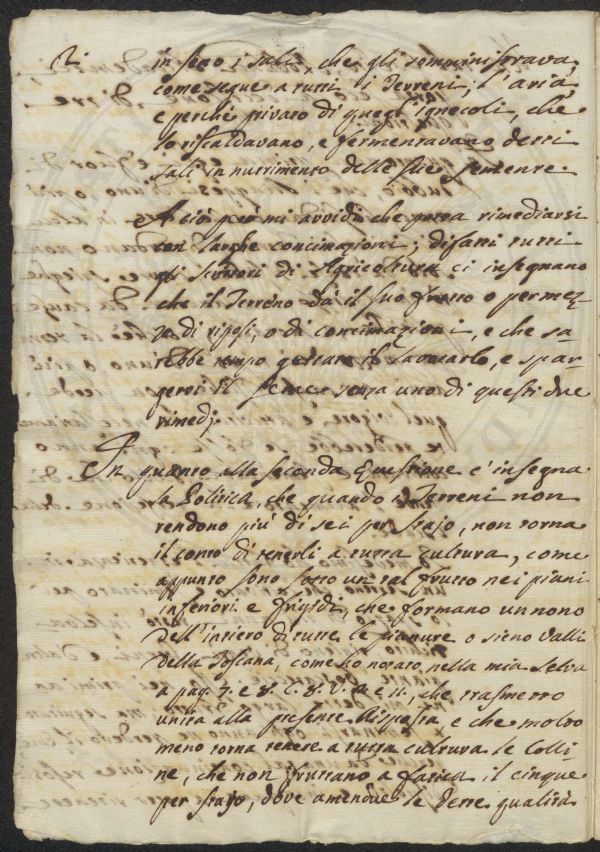 2.
in seno i sali che gli somministrava
come segue a tutti i Terreni, l'aria
e perchè privato di quegl'ignecoli, che
lo riscaldavano, e fermentavano detti
sali in nutrimento delle sue semente
A ciò per mi avvidi che possa rimediarsi
con larghe concimazioni; difatti tutti
gli Scrittori di Agricoltura ci insegnano
che il Terreno dà il suo frutto o per mez
zo di riposi, o di concimazioni, e che sa-
rebbe tempo gettato il lavorarlo, e spar-
gervi il seme senza uno di questi due
rimedj.
In quanto alla seconda Questione c'insegna
la Politica, che quando i Terreni non
rendono più di sei per stajo, non torna
il conto di tenerli a tutta cultura, come
appunto sono sotto un tal frutto nei piani
inferiori e frigidi, che formano un nono
dell'intiero di tutte le pianure o sieno Valli
della Toscana, come ho notato nella mia Selva
a pag. 7. e 8. C. 8. V. a e 11., che trasmetto
unita alla presente Risposta, e che molto
meno torna tenere a tutta cultura le Colli-
ne, che non fruttano a fatica il cinque
per stajo, dove amendue le dette qualità